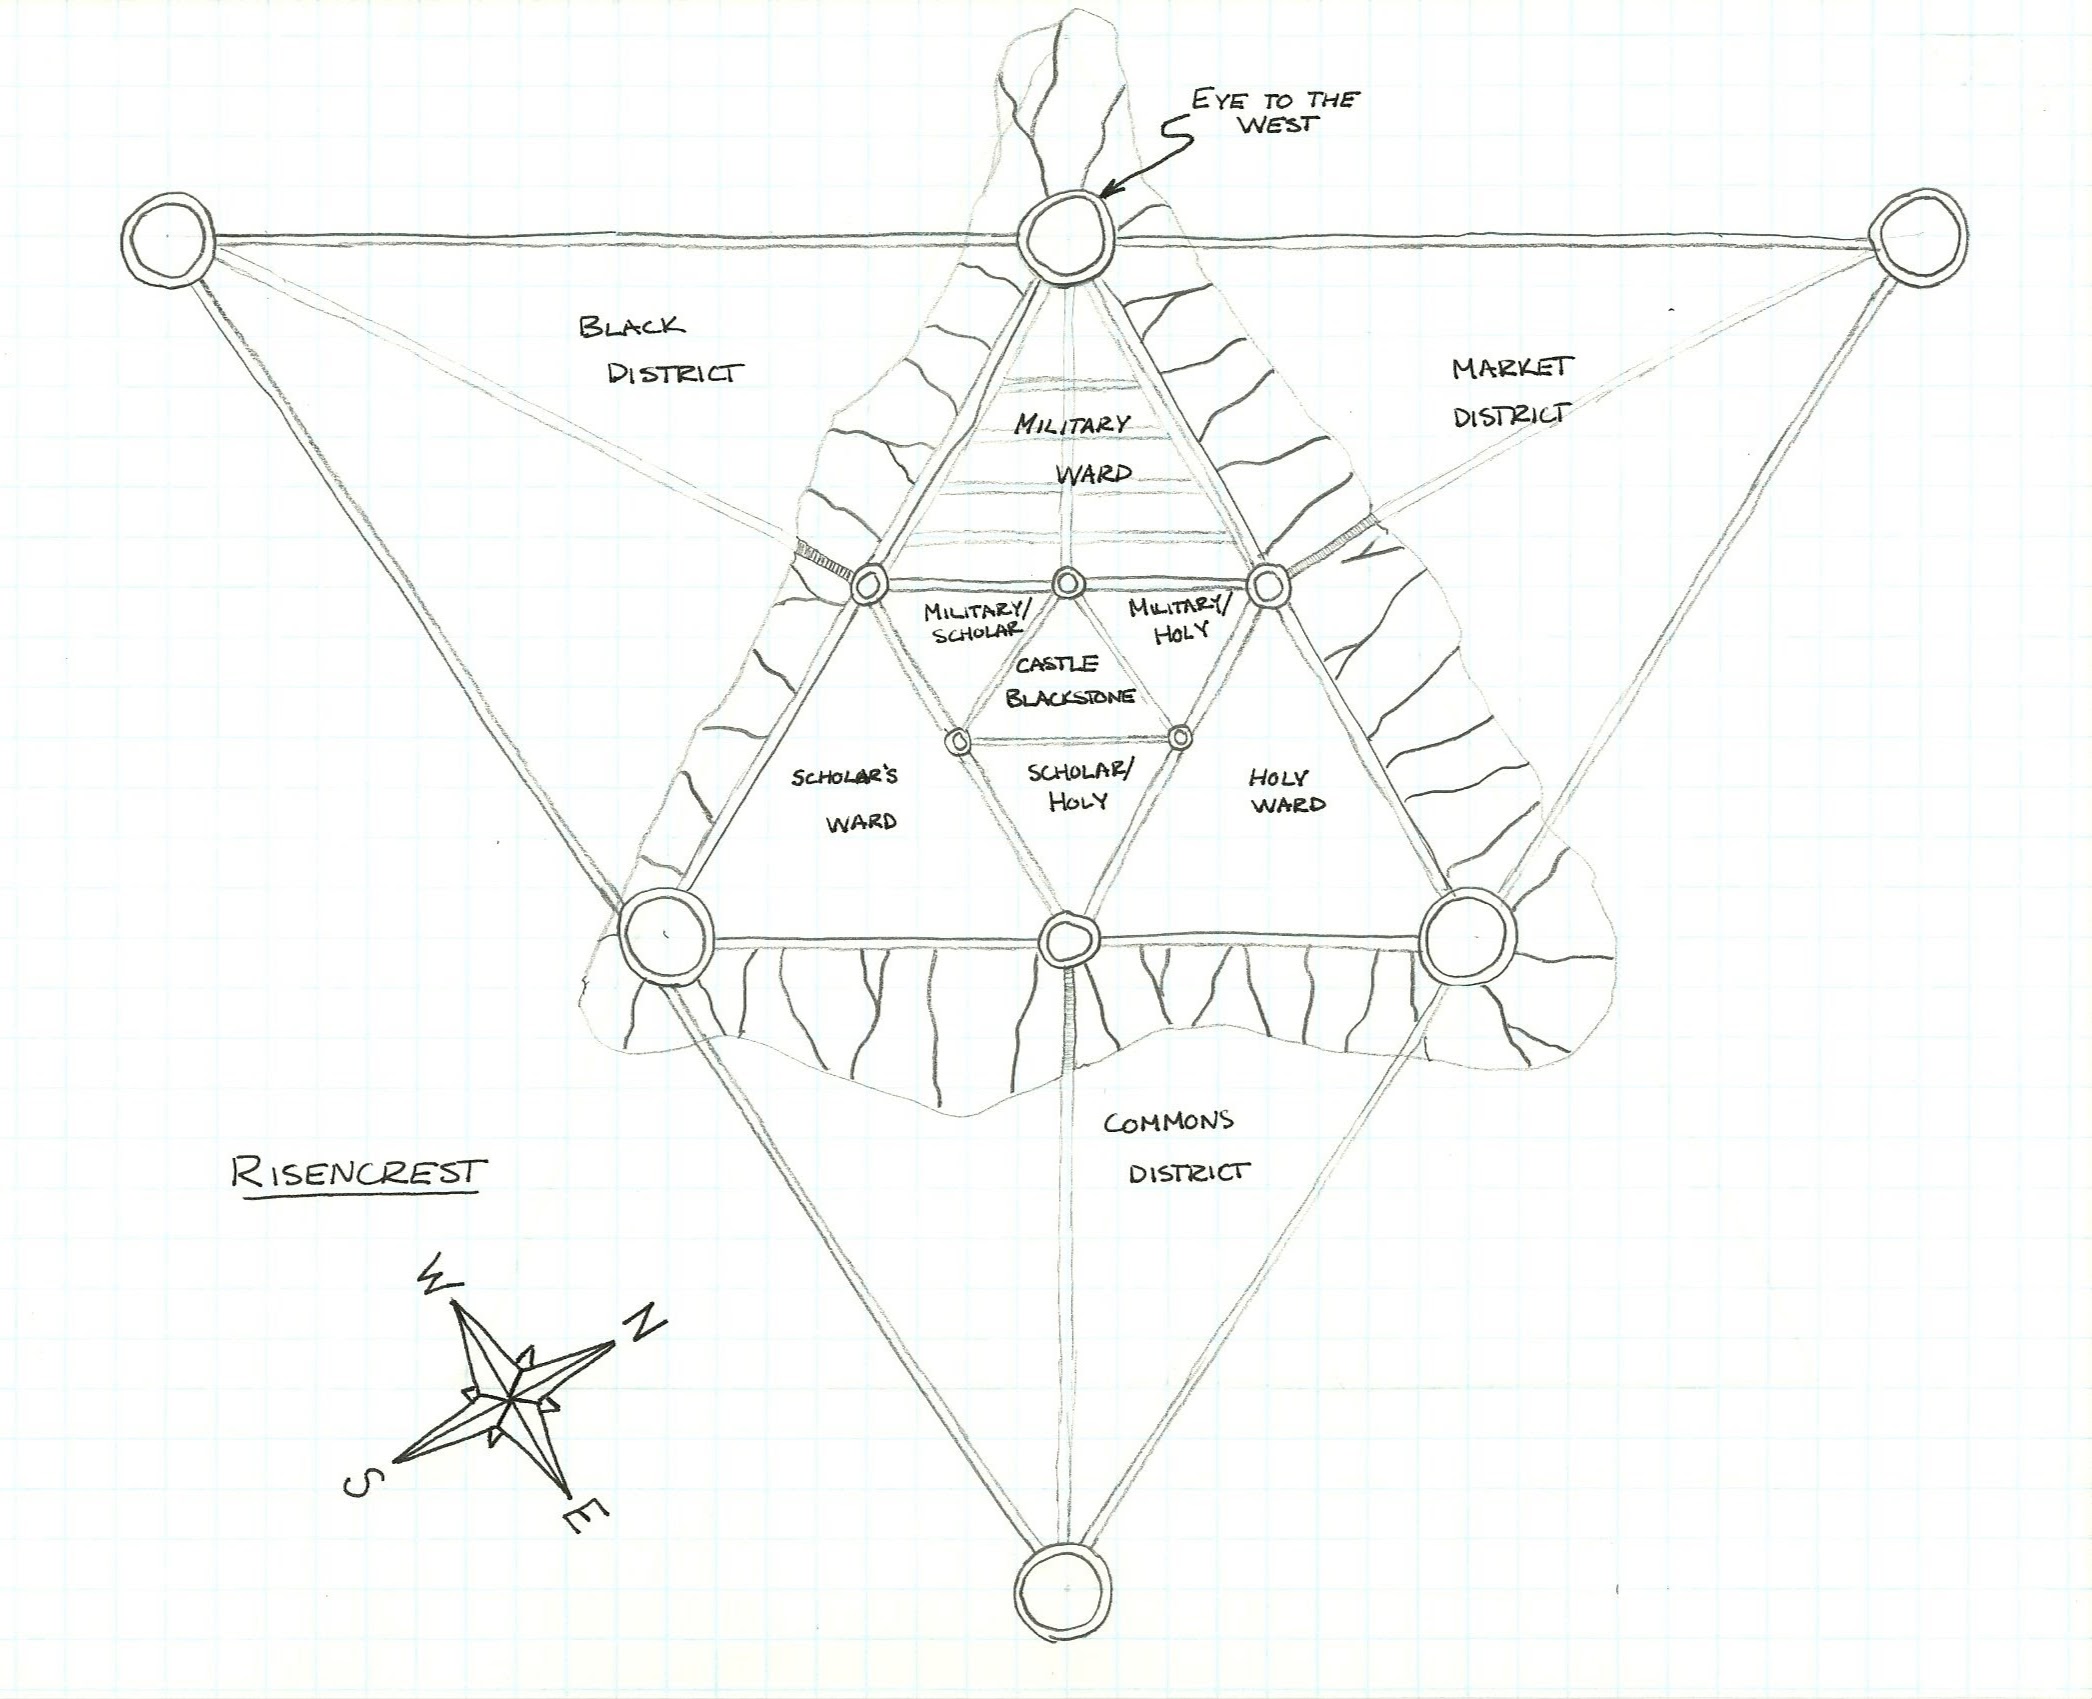 EYE TO THE
WEST
BLACK
DISTRICT
MARKET
DISTRICT
MILITARY
WARD
MILITARY/
SCHOLAR
MILITARY/
HOLY
CASTLE
BLACKSTONE
SCHOLAR'S
WARD
SCHOLAR/
HOLY
HOLY
WARD
COMMONS
DISTRICT
RISENCREST
W
N
S
E